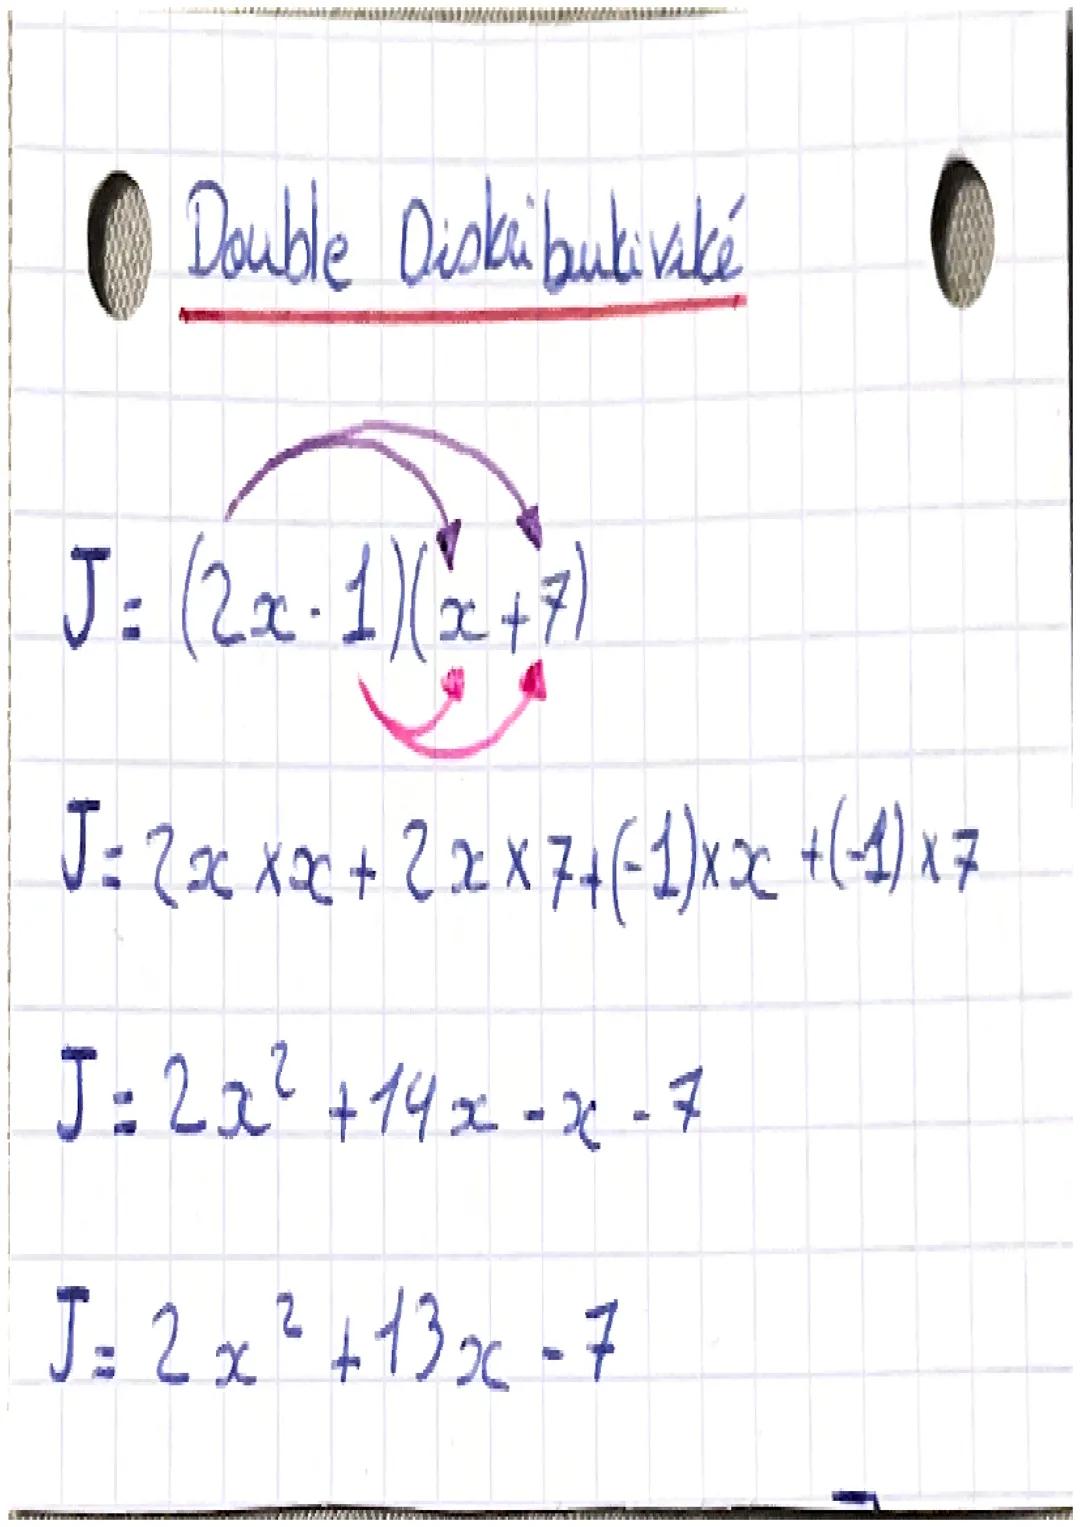 Double Distributivité
J = (2x - 1)(x + 7)
J = 2x × x + 2x × 7 + (-1) × x + (-1) × 7
J = 2x² + 14x - x - 7
J = 2x² + 13x - 7